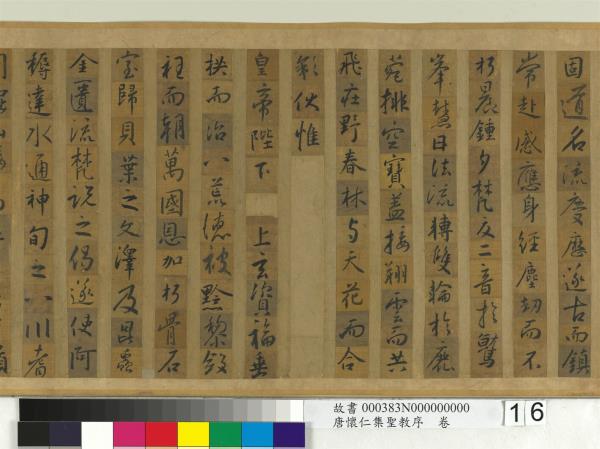 固道名流慶歷遂古而鎮
常赴感應身經塵劫而不
朽晨鍾夕梵交二音於鷲
峯慧日法流轉雙輪於鹿
菀排空寶蓋接翔雲而共
飛莊野春林與天花而合
彩伏惟
皇帝陛下 上玄資福垂
拱而治八荒德被黔黎斂
衽而朝萬國恩加朽骨石
室歸貝葉之文澤及昆蟲
金匱流梵說之偈遂使阿
耨達水通神甸之八川耆
故書 000383N000000000
唐懷仁集聖教序 卷
16